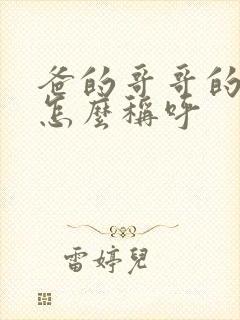 爸的哥哥的
怎麼稱呼
雷婷兒